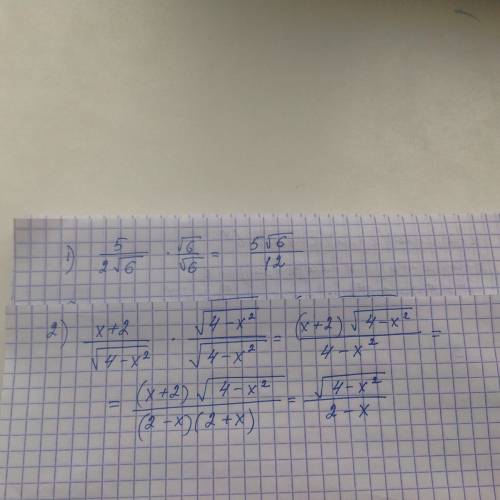 1) 5/(2√6) · √6/√6 = 5√6/12
2) (x+2)/√(4-x²) · √(4-x²)/√(4-x²) = (x+2)√(4-x²)/(4-x²) =
= (x+2)√(4-x²)/((2-x)(2+x)) = √(4-x²)/(2-x)